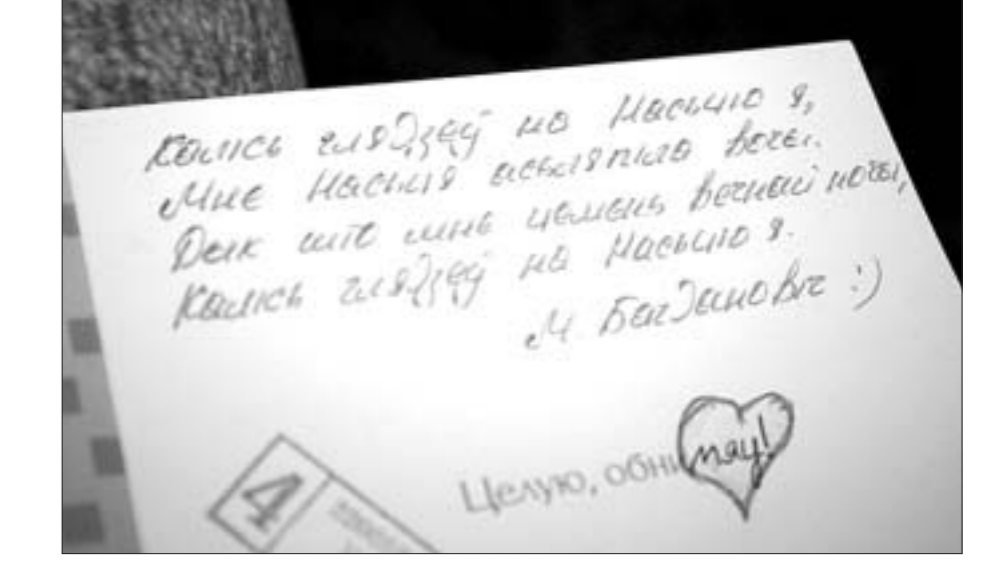 Калісь глядзеў на Насьцю я,
Мне Насьця асьляпіла вочы.
Дык што мне цемень вечнай ночы,
Калісь глядзеў на Насьцю я.
М. Багдановіч :)
Целую, обни мяу!
4